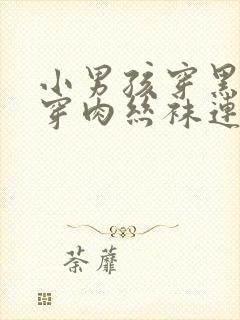 小男孩穿黑
穿肉丝袜连
荼蘼